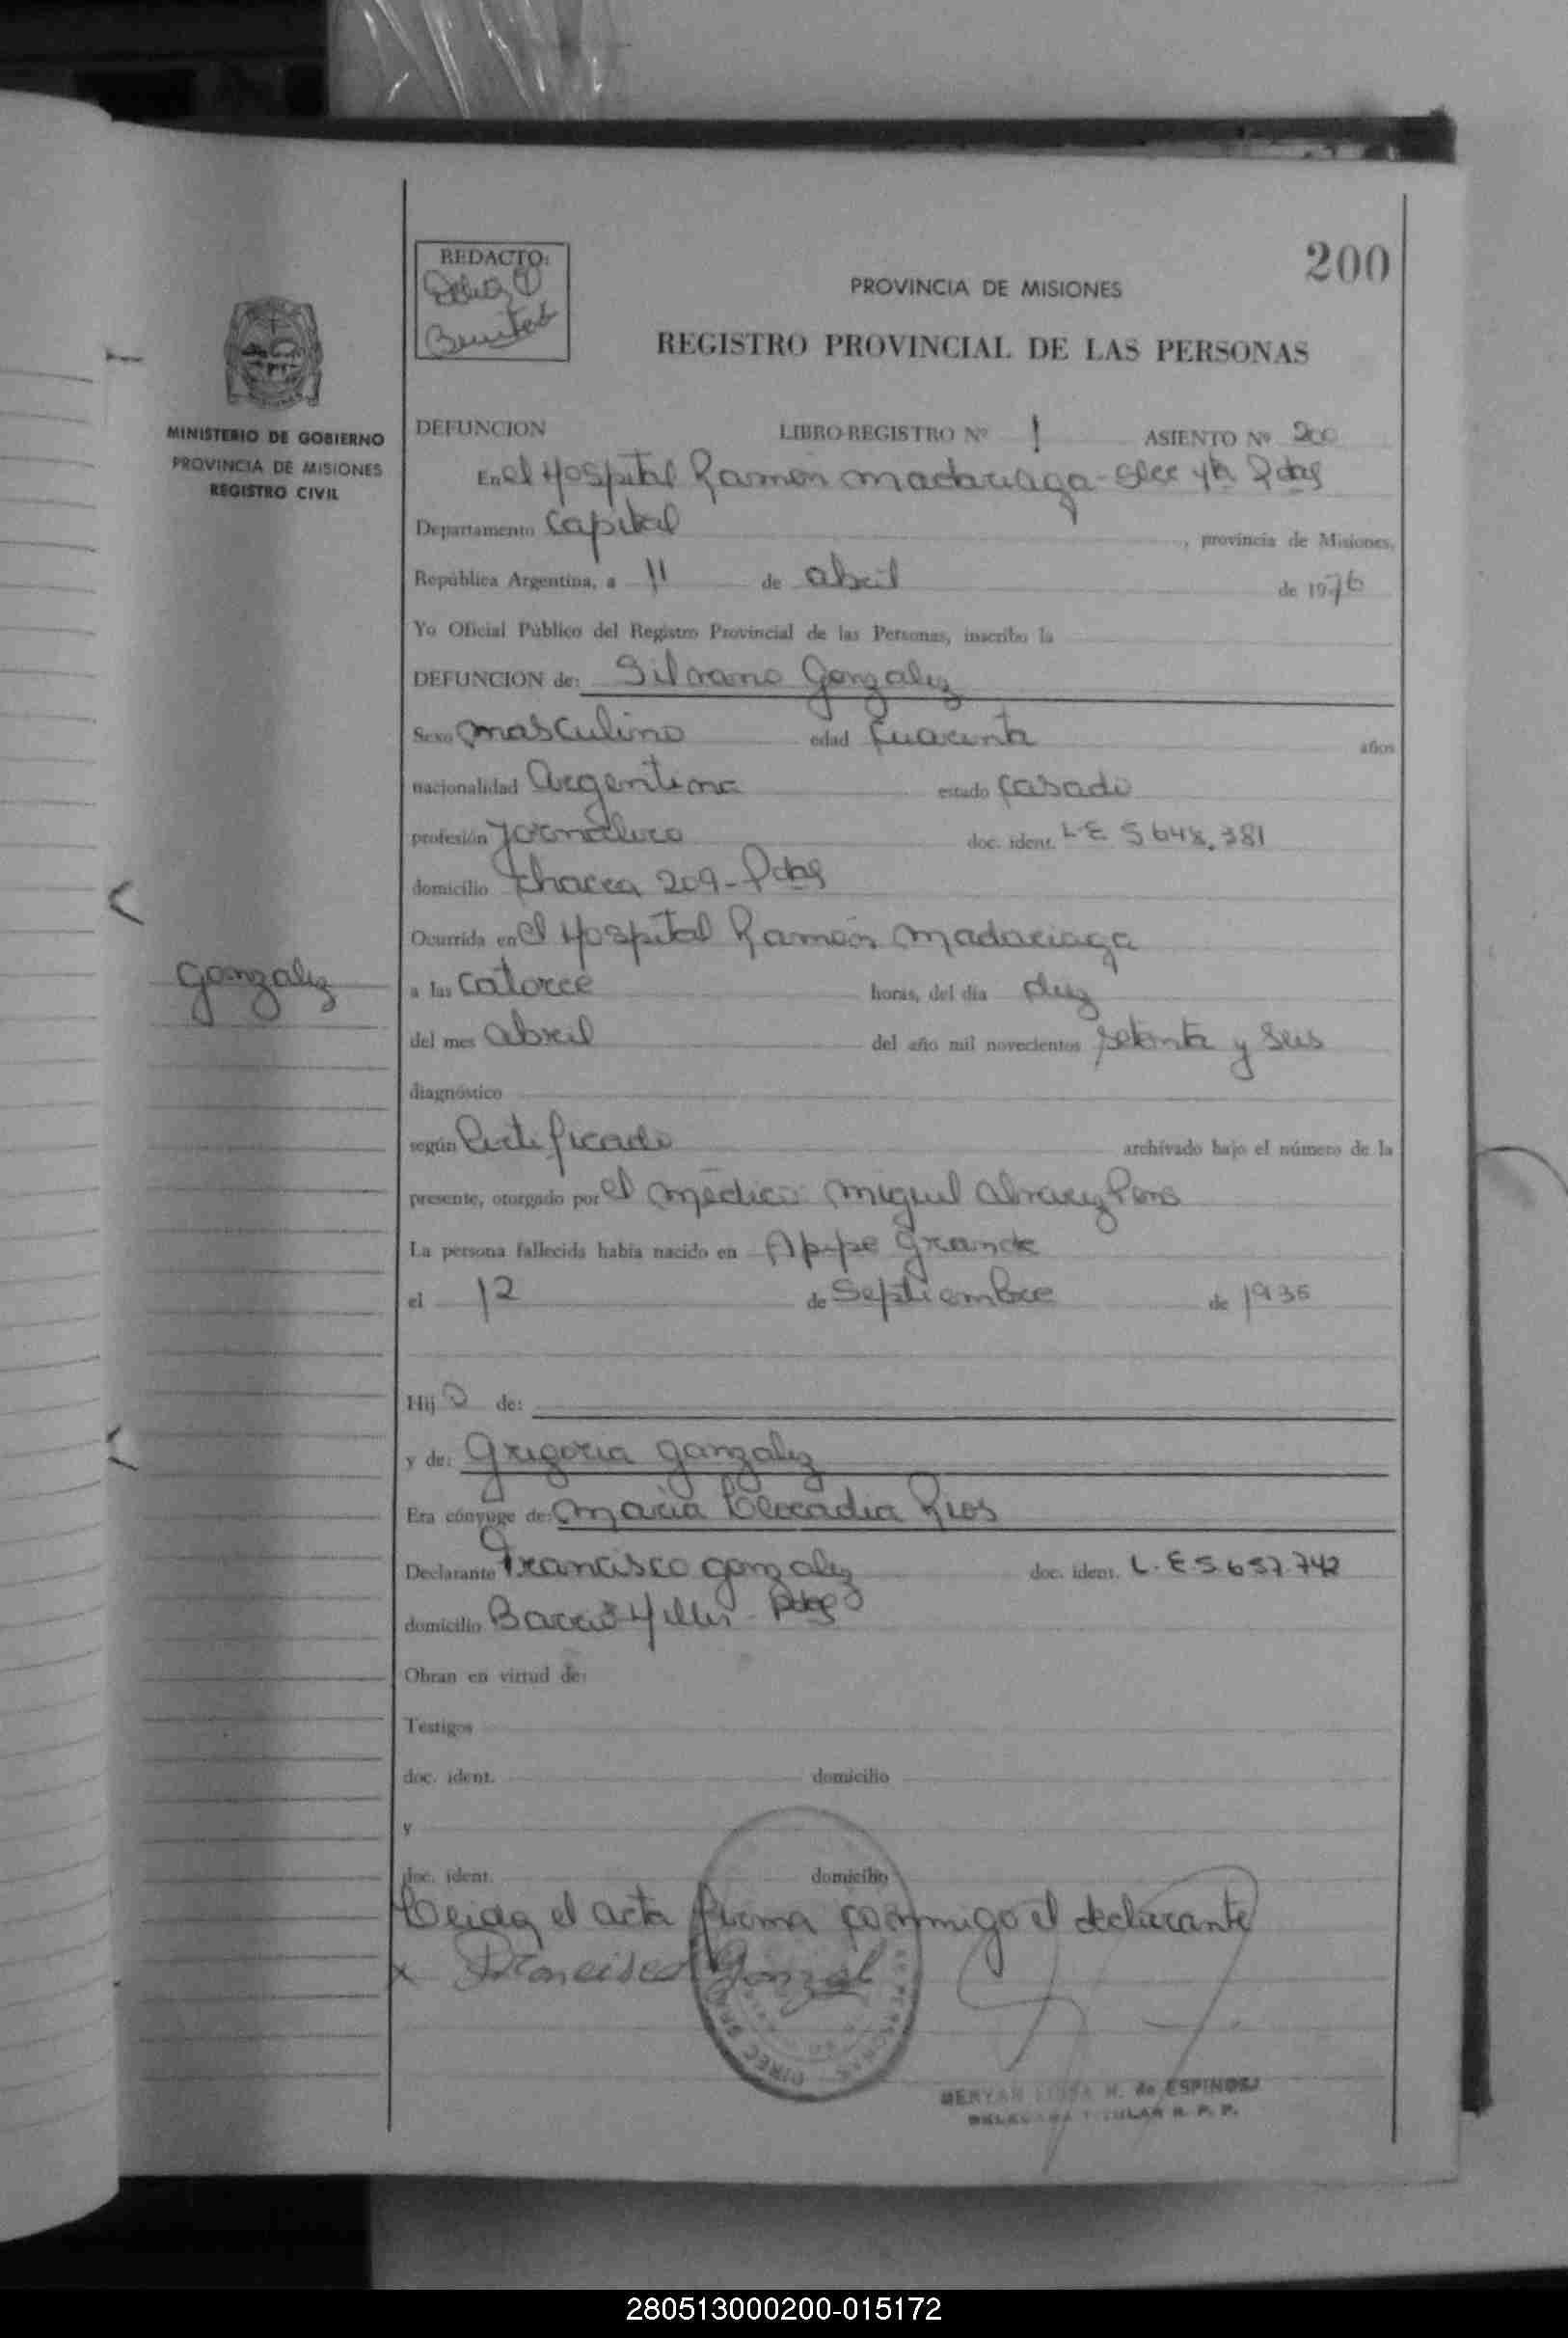 200
REDACTO:
Benitez
PROVINCIA DE MISIONES
REGISTRO PROVINCIAL DE LAS PERSONAS
MINISTERIO DE GOBIERNO
PROVINCIA DE MISIONES
REGISTRO CIVIL
DEFUNCION LIBRO-REGISTRO Nº 1 ASIENTO Nº 200
En el Hospital Ramón Madariaga - Secc 4ta Pdas
Departamento Capital, provincia de Misiones,
República Argentina, a 11 de abril de 1976
Yo Oficial Público del Registro Provincial de las Personas, inscribo la
DEFUNCION de: Silvano Gonzalez
Sexo masculino edad Cuarenta años
nacionalidad Argentina estado Casado
profesión Jornalero doc. ident. L E 5648.381
domicilio Chacra 209 - Pdas
Ocurrida en el Hospital Ramón Madariaga
Gonzalez
a las Catorce horas, del día diez
del mes abril del año mil novecientos setenta y seis
diagnóstico
según Certificado archivado bajo el número de la
presente, otorgado por el médico Miguel
La persona fallecida había nacido en Apipe Grande
el 12 de Septiembre de 1935
Hijo de:
y de: Gregoria Gonzalez
Era cónyuge de: Maria Leocadia Rios
Declarante Francisco Gonzalez doc. ident. L.E 5.657.742
domicilio Barrio Yllia - Pdas
Obran en virtud de:
Testigos
doc. ident. domicilio
y
doc. ident. domicilio
Leida el acta firma conmigo el declarante
x Francisco Gonzal
H. de ESPINOSA
TITULAR R. P. P.
280513000200-015172